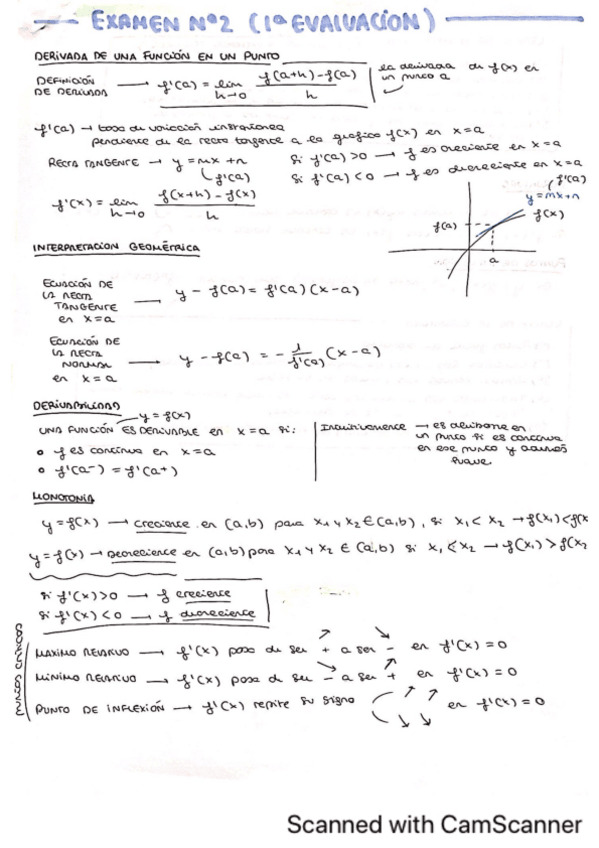 EXAMEN Nº2 (1ª EVALUACIÓN)
DERIVADA DE UNA FUNCIÓN EN UN PUNTO
DEFINICIÓN DE DERIVADA → f'(a) = lim h→0 f(a+h)-f(a) / h
la derivada de f(x) en un punto a
f'(a) → tasa de variación instantánea
pendiente de la recta tangente a la gráfica f(x) en x=a
RECTA TANGENTE → y = mx + n
f'(a)
Si f'(a) > 0 → f es creciente en x=a
Si f'(a) < 0 → f es decreciente en x=a
f'(x) = lim h→0 f(x+h) - f(x) / h
f'(a)
y=mx+n
f(x)
f(a)
a
INTERPRETACIÓN GEOMÉTRICA
ECUACIÓN DE
LA RECTA
TANGENTE
en x=a
→ y - f(a) = f'(a) (x-a)
ECUACIÓN DE
LA RECTA
NORMAL
en x=a
→ y - f(a) = - 1/f'(a) (x-a)
DERIVABILIDAD
y = f(x)
UNA FUNCIÓN ES DERIVABLE en x=a si:
• f es continua en x=a
• f'(a-) = f'(a+)
Intuitivamente → es derivable en
un punto si es continua
en ese punto y además
suave.
MONOTONÍA
y = f(x) → creciente en (a,b) para x1 y x2 ∈ (a,b), si x1 < x2 → f(x1) < f(x
y = f(x) → Decreciente en (a,b) para x1 y x2 ∈ (a,b) si x1 < x2 → f(x1) > f(x2
Si f'(x) > 0 → f creciente
Si f'(x) < 0 → f decreciente
MÁXIMO RELATIVO → f'(x) pasa de ser + a ser - en f'(x) = 0
MÍNIMO RELATIVO → f'(x) pasa de ser - a ser + en f'(x) = 0
PUNTO DE INFLEXIÓN → f'(x) repite su signo en f'(x) = 0
Scanned with CamScanner